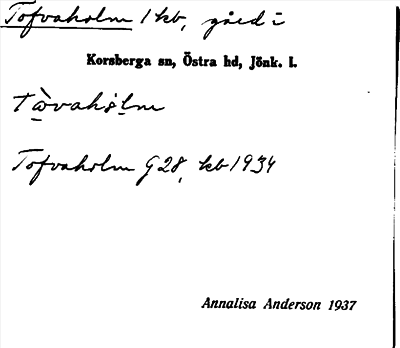 Tofvaholm 1 kb, gård i
Korsberga sn, Östra hd, Jönk. l.
Tofvaholm G 28, kb 1934
Annalisa Anderson 1937